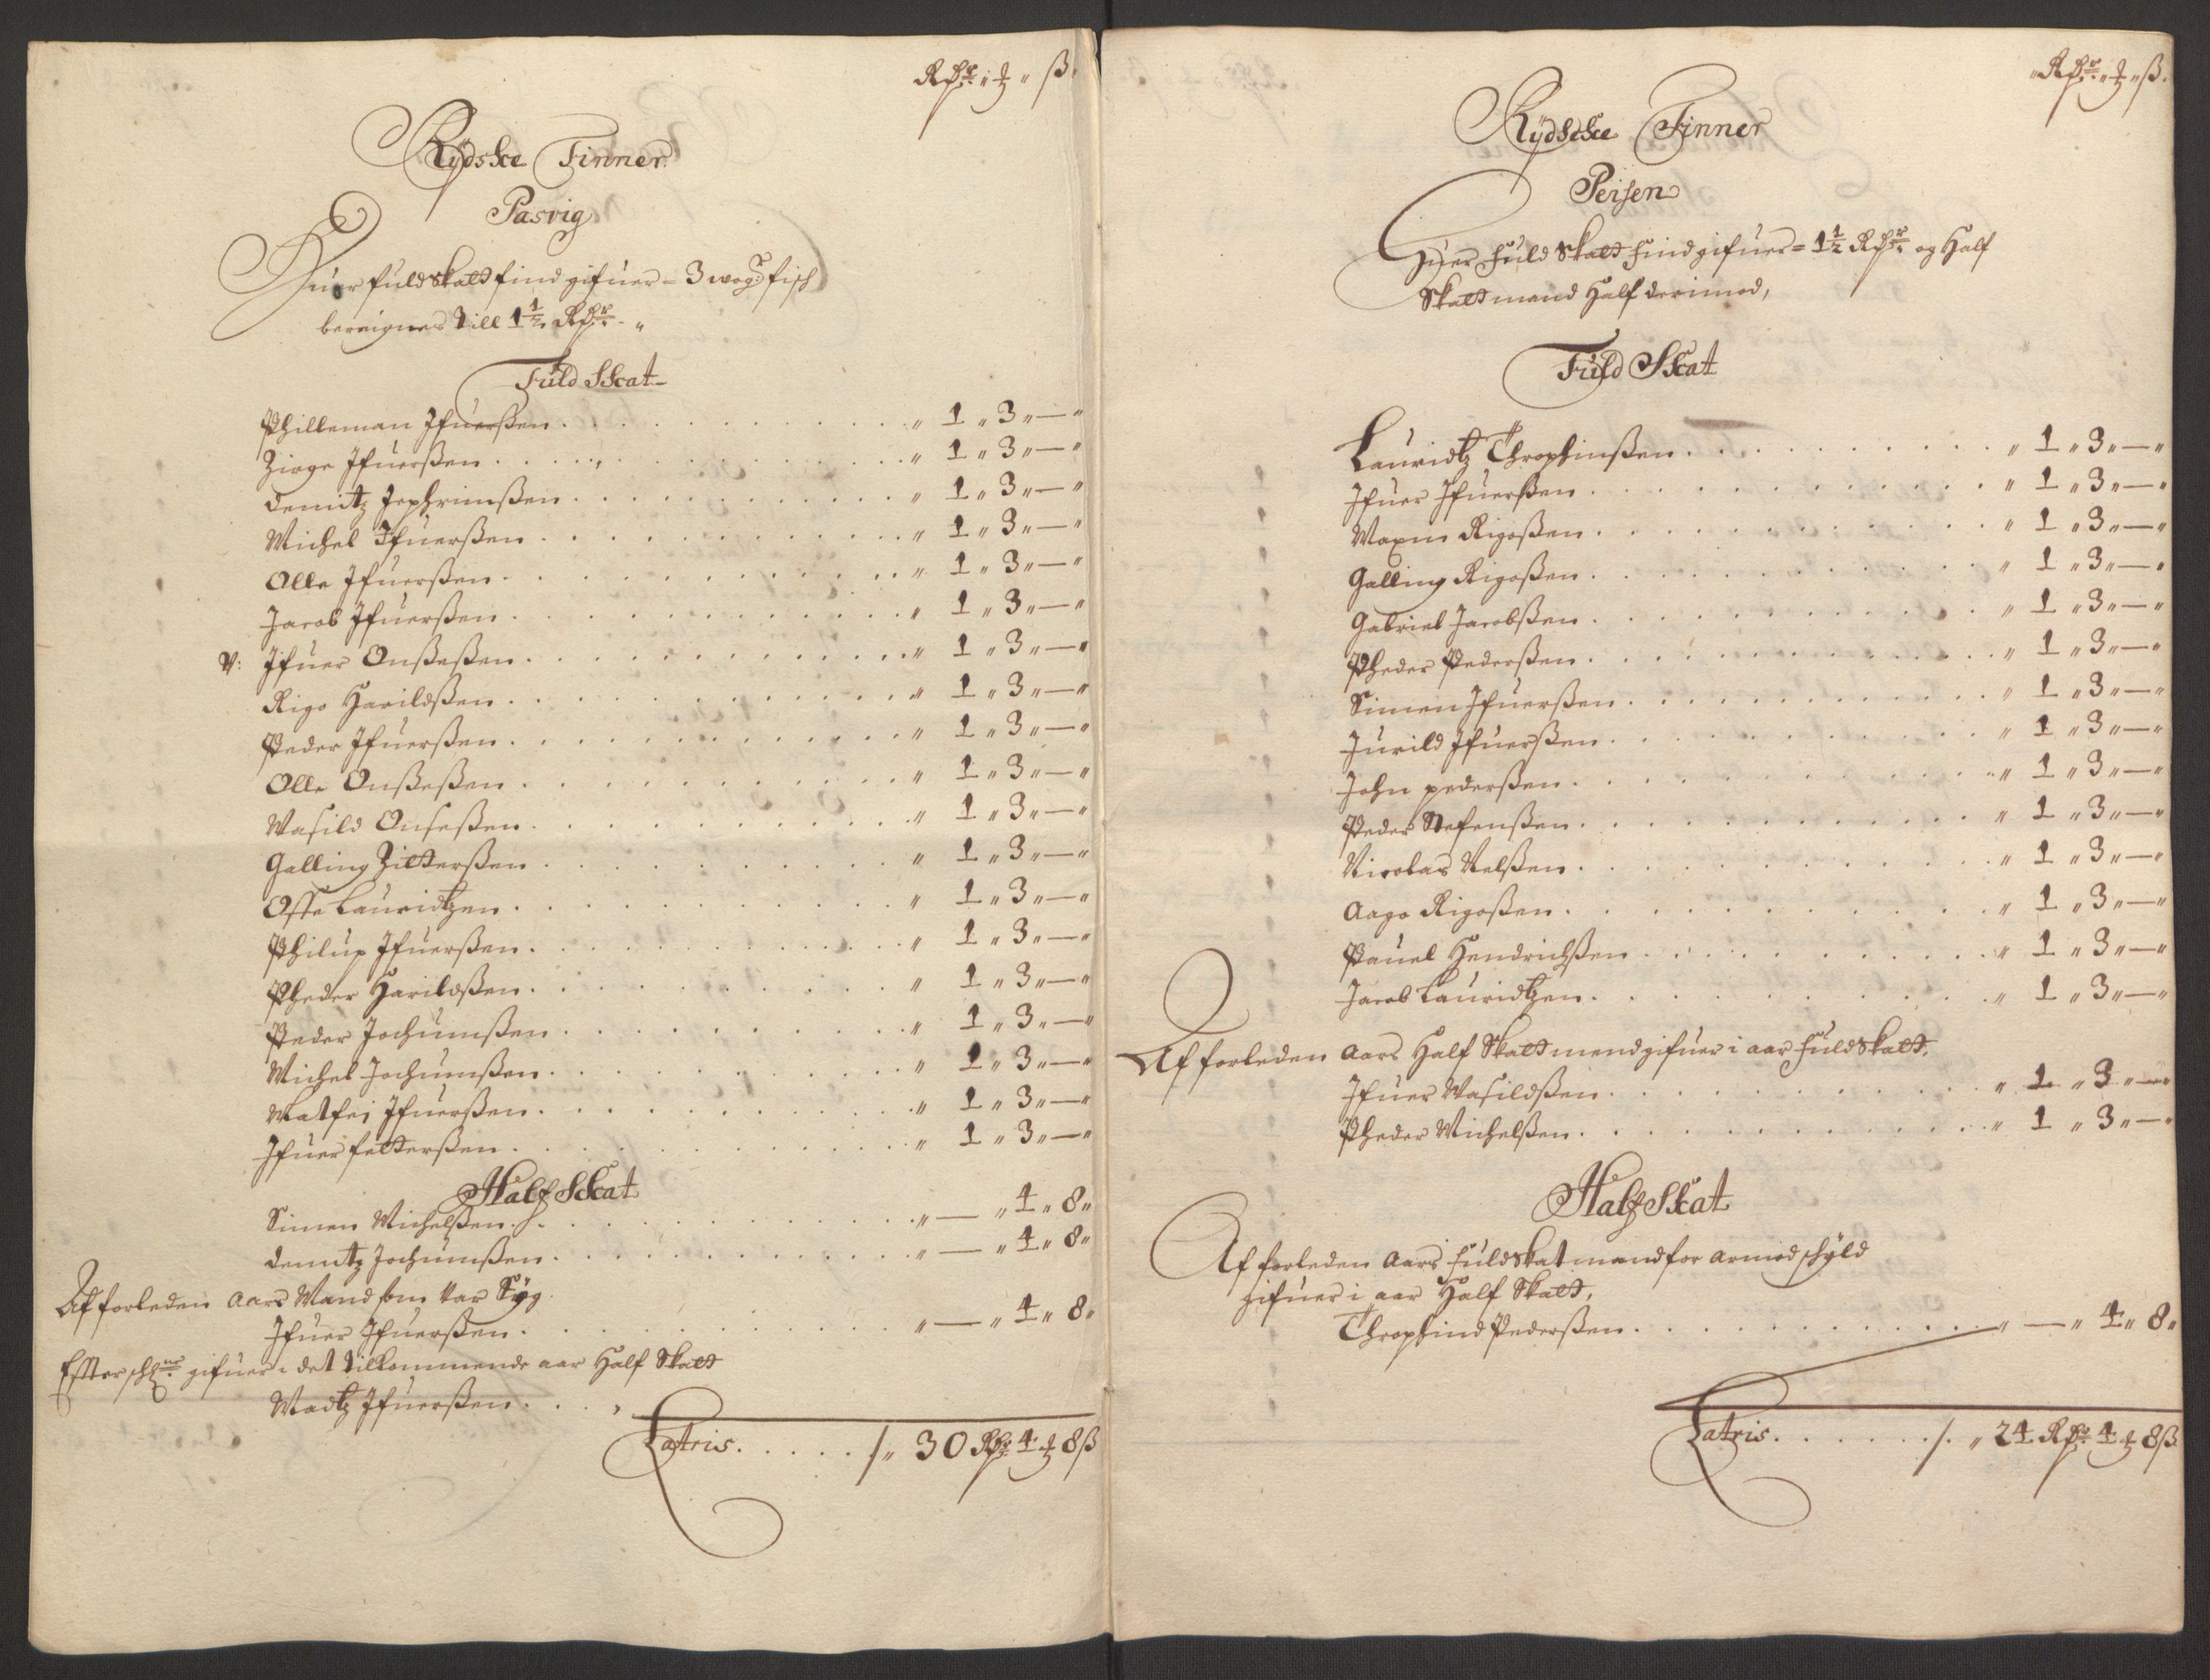 Rdr " ₰ " ß.
Rydske Finner
Pasvig
Huer fuld Skatt find gifuer = 3 wogr fisch
bereignes till 1½ Rdr "
Fuld Skat
Philleman Ifuerßen " 1 " 3 " — "
Zirge Ifuerßen " 1 " 3 " — "
Demitz Jephrimßen " 1 " 3 " — "
Michel Ifuerßen " 1 " 3 " — "
Olle Ifuerßen " 1 " 3 " — "
Jacob Ifuerßen " 1 " 3 " — "
V: Ifuer Onßeßen " 1 " 3 " — "
Rigo Harildßen " 1 " 3 " — "
Peder Ifuerßen " 1 " 3 " — "
Olle Onßeßen " 1 " 3 " — "
Wasild Onseßen " 1 " 3 " — "
Galling Zilterßen " 1 " 3 " — "
Osse Lauridtzen " 1 " 3 " — "
Philup Ifuerßen " 1 " 3 " — "
Pheder Harildßen " 1 " 3 " — "
Peder Jochumßen " 1 " 3 " — "
Michel Jochumßen " 1 " 3 " — "
Matfei Ifuerßen " 1 " 3 " — "
Ifuer felterßen " 1 " 3 " — "
Half Skat
Simen Michelßen " — " 4 " 8 "
Demitz Jochumßen " — " 4 " 8 "
Af forleden aars Mand som var Syg
Ifuer Ifuerßen " — " 4 " 8 "
Effterschne gifuer i det tilkommende aar Half Skatt
Madtz Ifuerßen
Latris /. " 30 Rdr 4 ₰ 8 ß
Rdr " ₰ " ß.
Rydscke Finner
Peisen
Huer fuld Skatt find gifuer = 1½ Rdr og Half
Skatt mand Half derimod,
Fuld Skat
Lauridtz Throphinßen " 1 " 3 " — "
Ifuer Ifuerßen " 1 " 3 " — "
Maxm Rigoßen " 1 " 3 " — "
Galling Rigoßen " 1 " 3 " — "
Gabriel Jacobßen " 1 " 3 " — "
Pheder Pederßen " 1 " 3 " — "
Simen Ifuerßen " 1 " 3 " — "
Jurild Ifuerßen " 1 " 3 " — "
John pederßen " 1 " 3 " — "
Peder Stefenßen " 1 " 3 " — "
Nicolas Nelßen " 1 " 3 " — "
Aago Rigoßen " 1 " 3 " — "
Pauel Hendrichßen " 1 " 3 " — "
Jacob Lauridtzen " 1 " 3 " — "
Af forleden aars Half Skatt mend gifuer i aar fuld Skatt.
Ifuer Wasildßen " 1 " 3 " — "
Pheder Michelßen " 1 " 3 " — "
Half Skat
Af forleden aars fuld Skat mand for armod skyld
gifuer i aar Half Skatt,
Throphind Pederßen " — " 4 " 8 "
Latris /. " 24 Rdr 4 ₰ 8 ß